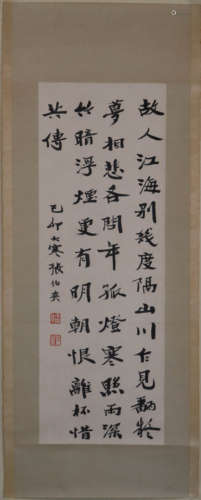 故人江海別幾度隔山川乍見翻疑
夢相悲各問年孤燈寒照雨深
竹暗浮煙更有明朝恨離杯惜
共傳
己卯大寒張伯英